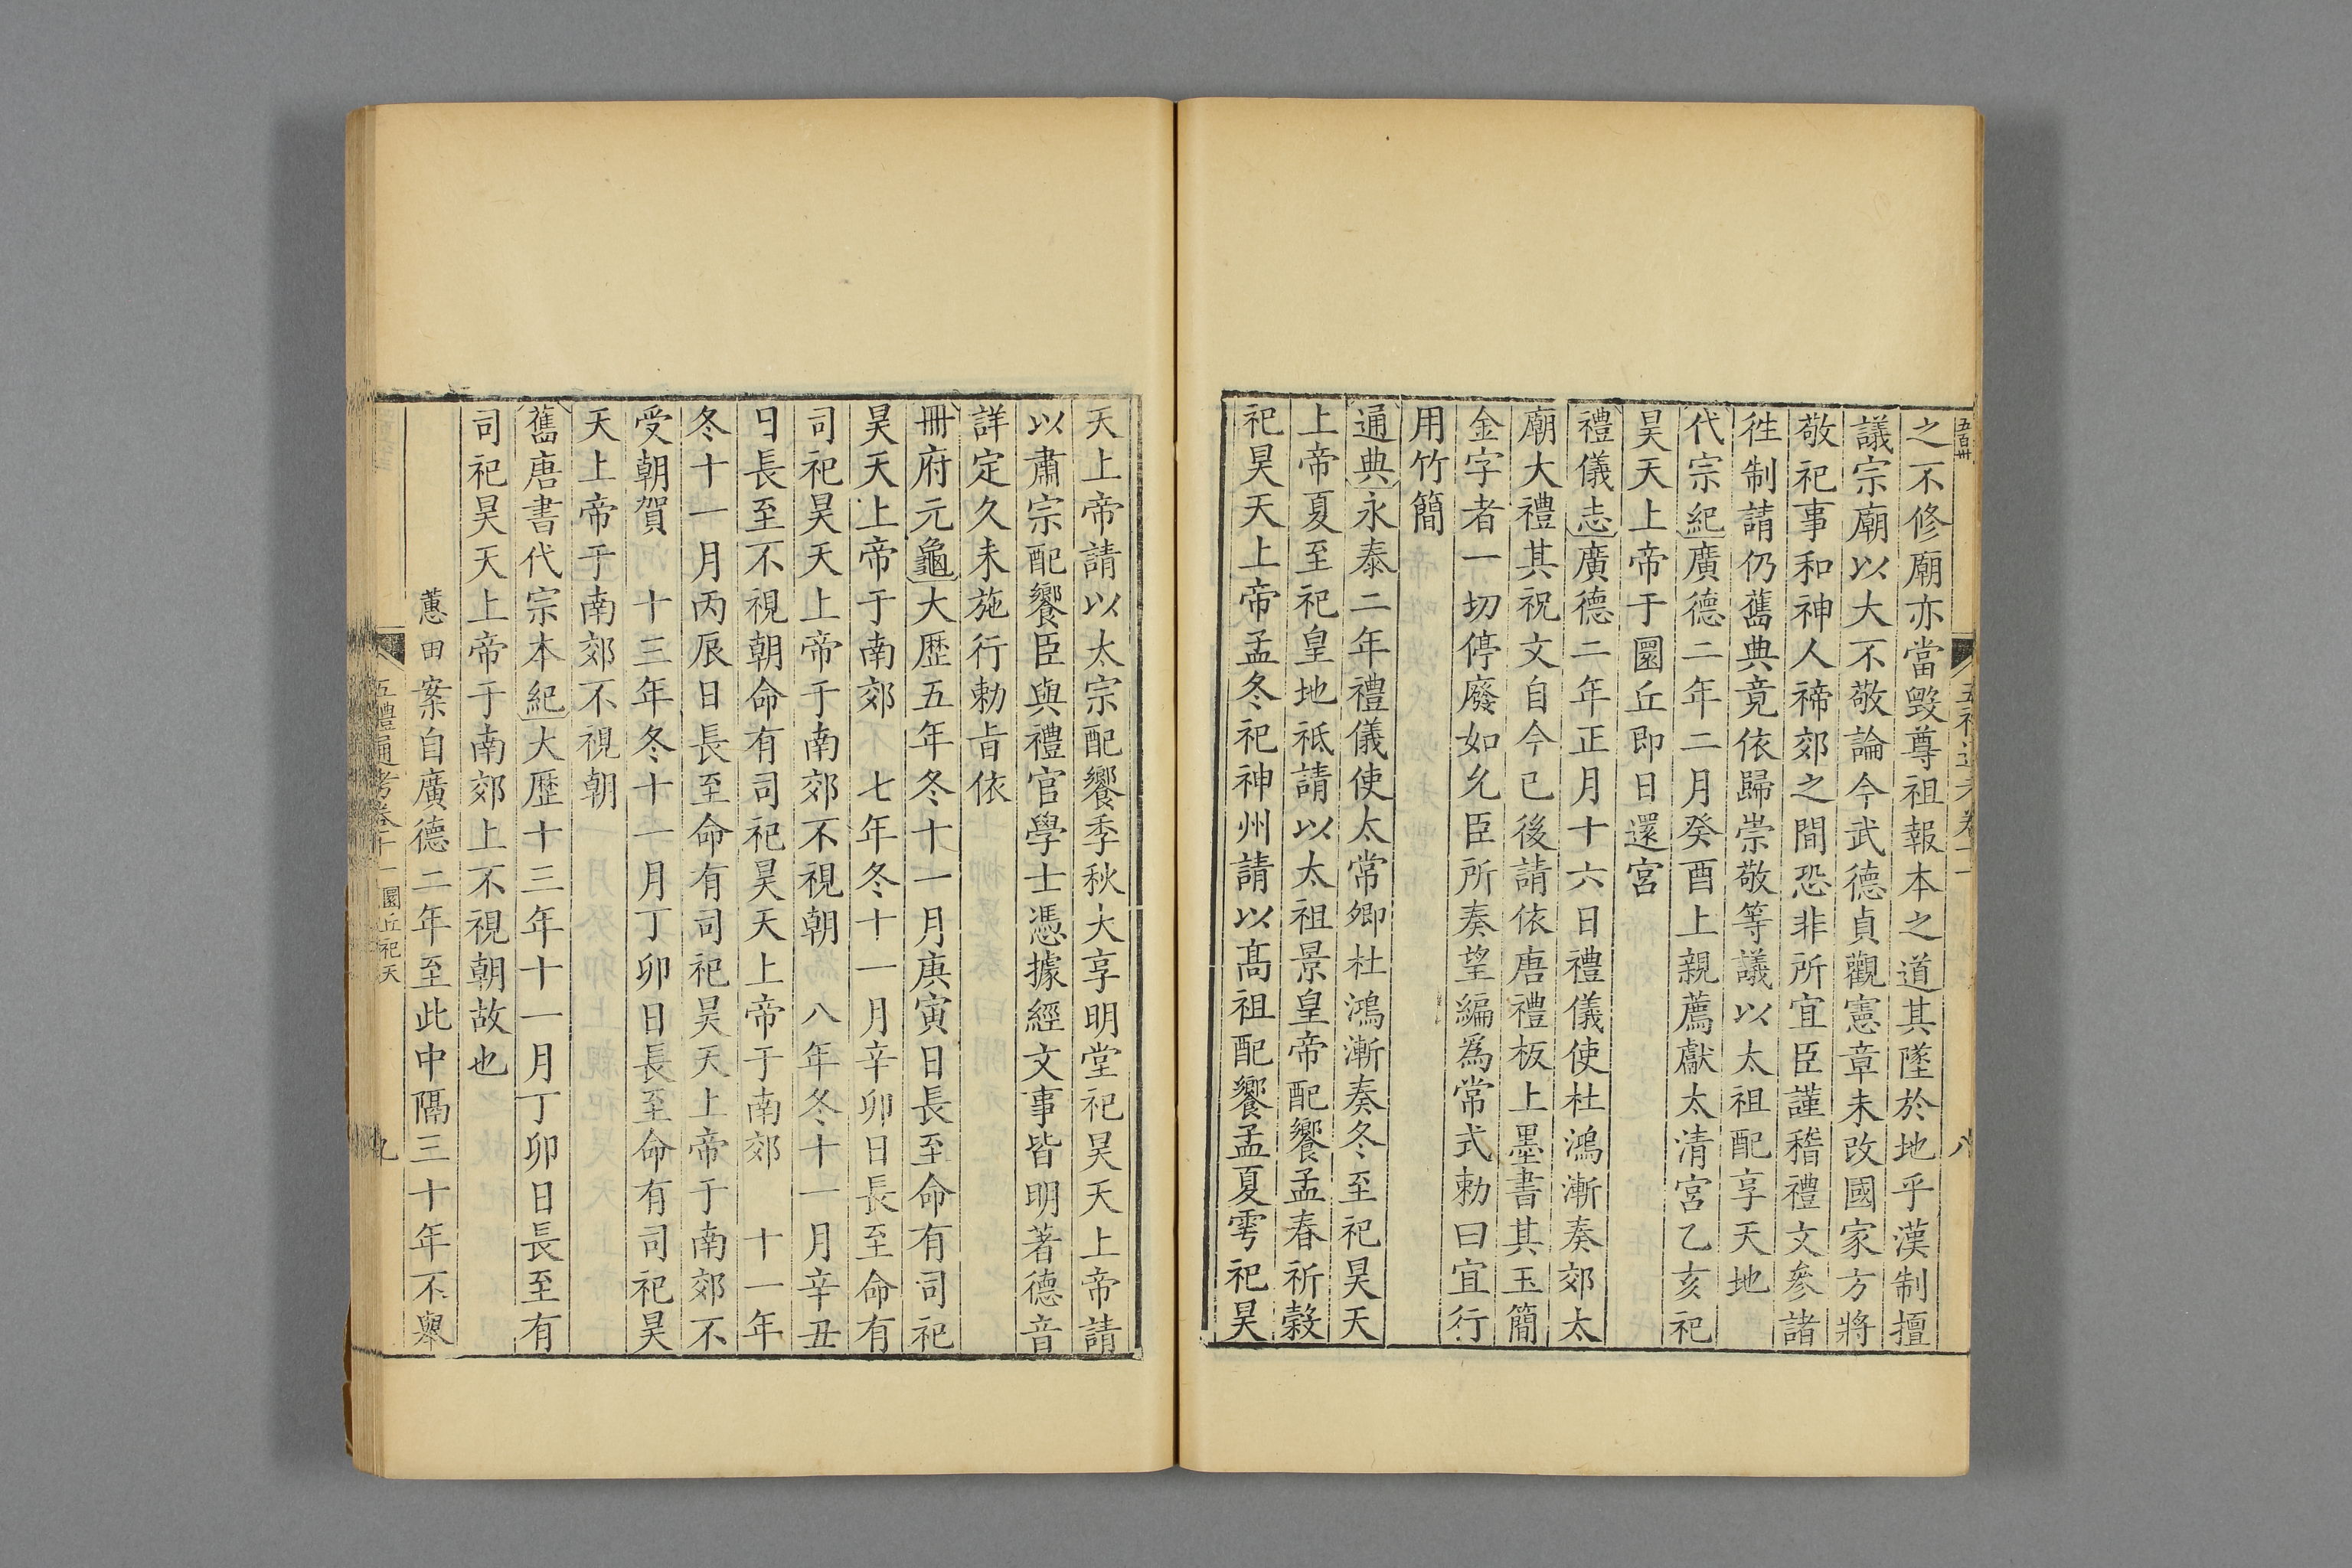 之不修廟亦當毀尊祖報本之道其墜於地乎漢制擅
議宗廟以大不敬論今武德貞觀憲章未改國家方將
敬祀事和神人禘郊之間恐非所宜臣謹稽禮文參諸
徃制請仍舊典竟依歸崇敬等議以太祖配享天地
代宗紀廣德二年二月癸酉上親薦獻太清宮乙亥祀
昊天上帝于圜丘即日還宮
禮儀志廣德二年正月十六日禮儀使杜鴻漸奏郊太
廟大禮其祝文自今已後請依唐禮板上墨書其玉簡
金字者一切停廢如允臣所奏望編爲常式勅曰宜行
用竹簡
通典永泰二年禮儀使太常卿杜鴻漸奏冬至祀昊天
上帝夏至祀皇地祇請以太祖景皇帝配饗孟春祈穀
祀昊天上帝孟冬祀神州請以髙祖配饗孟夏雩祀昊
八
天上帝請以太宗配饗季秋大享明堂祀昊天上帝請
以肅宗配饗臣與禮官學士憑據經文事皆明著德音
詳定久未施行勅㫖依
冊府元龜大歴五年冬十一月庚寅日長至命有司祀
昊天上帝于南郊　七年冬十一月辛卯日長至命有
司祀昊天上帝于南郊不視朝　八年冬十一月辛丑
日長至不視朝命有司祀昊天上帝于南郊　十一年
冬十一月丙辰日長至命有司祀昊天上帝于南郊不
受朝賀　十三年冬十一月丁卯日長至命有司祀昊
天上帝于南郊不視朝
舊唐書代宗本紀大歴十三年十一月丁卯日長至有
司祀昊天上帝于南郊上不視朝故也
蕙田案自廣德二年至此中隔三十年不舉
五禮通考卷十一　圜丘祀天　九